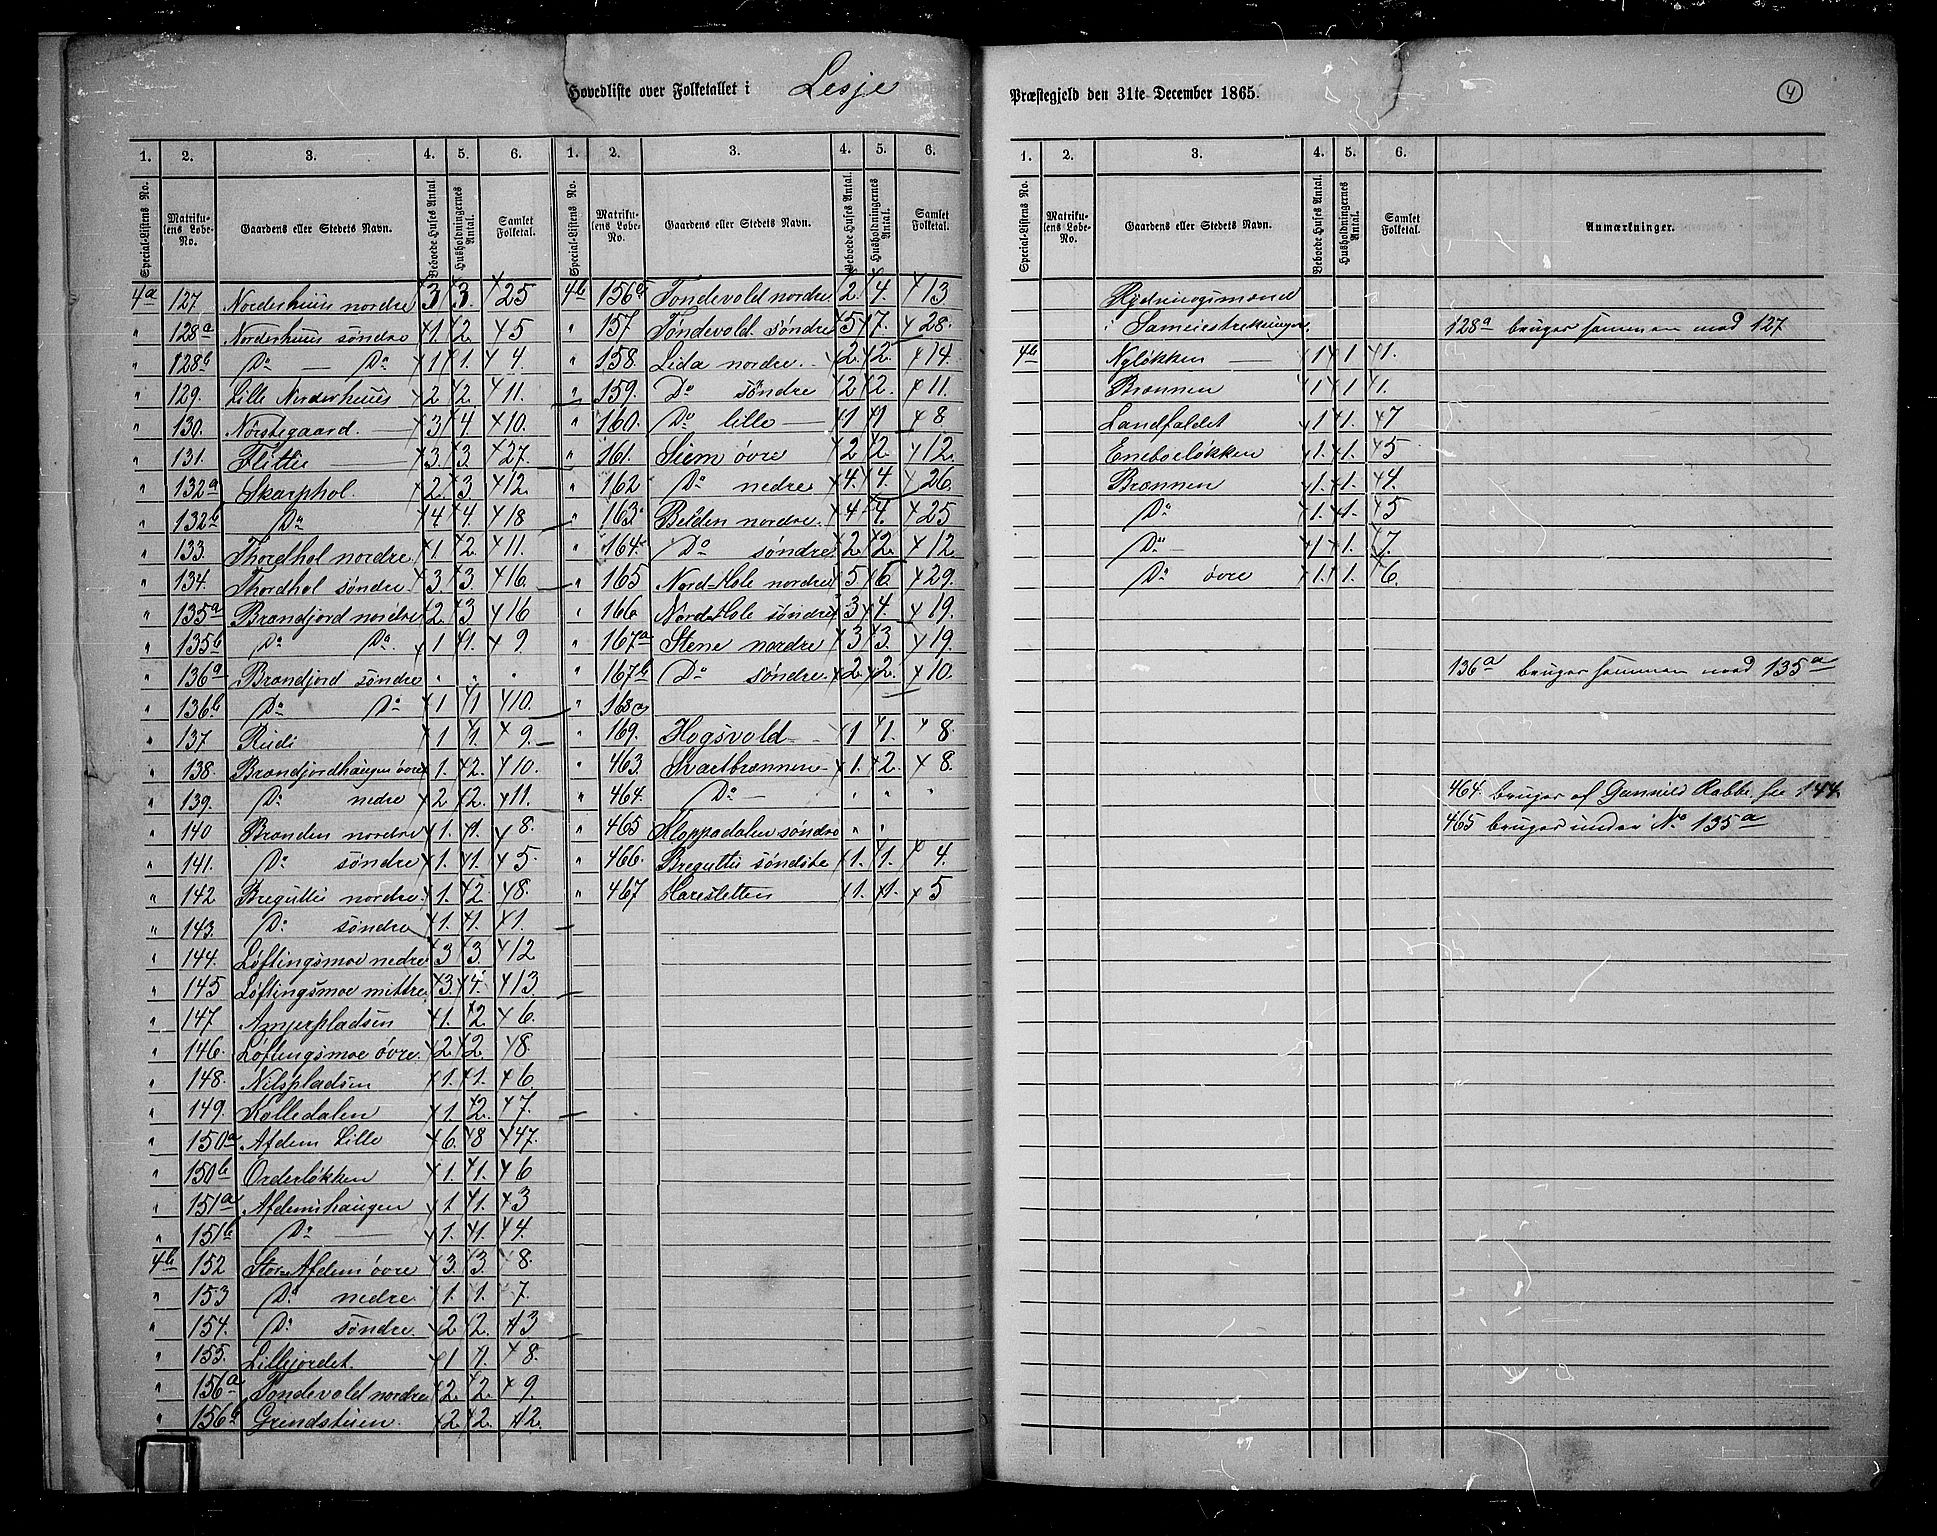 Hovedliste over Folketallet i Lesje Præstegjeld den 31te December 1865.
4
1. 2. 3. 4. 5. 6. 1. 2. 3. 4. 5. 6.
Special-Listens No. Matrikulens Løbe-No. Gaardens eller Stedets Navn. Beboede Huses Antal. Husholdningernes Antal. Samlet Folketal. Special-Listens No. Matrikulens Løbe-No. Gaardens eller Stedets Navn. Beboede Huses Antal. Husholdningernes Antal. Samlet Folketal.
4a 127 Norderhuus nordre 3 3 25
" 128a Norderhuus söndre 1 2 5
" 128b Do — Do 1 1 4
" 129. Lille Norderhuus 2 2 11.
" 130. Nörstegaard. 3 4 10.
" 131. Flittie 3 3 27.
" 132a Skarphol. 2 3 12.
" 132b Do 4 4 18
" 133. Thordhol nordre. 1 2 11.
" 134. Thordhol söndre 3 3 16.
" 135a Brandjord nordre 2 3 16
" 135b Do Do. 1 1. 9
" 136a Brandjord söndre " " "
" 136b Do Do 1 1 10.
" 137 Rudi 1 1. 9.
" 138. Brandjordhaugen övre 1. 2. 10.
" 139. Do nedre 2 2. 11.
" 140 Brænden nordre 1. 1. 8.
" 141. Do söndre 1. 1. 5.
" 142 Breguttie nordre 1. 2. 8.
" 143. Do söndre 1. 1. 1.
" 144. Löftingsmoe nedre 3 3. 12
" 145 Löftingsmoe mittre 3. 4. 13.
" 147. Amjerpladsen 1. 2 6.
" 146. Löftingsmoe övre. 2 2. 8.
" 148. Nilspladsen 1. 1. 6.
" 149. Kolledalen 1. 2. 7.
" 150a Afdem Lille 6. 8 47.
" 150b Orderlökken 1. 1. 6
" 151a Afdemshaugen 1 1. 3
" 151b Do 1. 1. 4.
4b 152 Stor-Afdem övre 3. 3. 8.
" 153 Do nedre 1. 1. 7.
" 154. Do söndre. 2 2. 13
" 155. Lillejordet. 1 1. 8.
" 156a Tondevold nordre 2. 2. 9.
" 156b Grendstuen. 2. 2. 12.
4b 156c Tondevold nordre 2. 4. 13
" 157. Tondevold söndre 5 7. 28.
" 158. Lida nordre. 2. 2. 14.
" 159. Do söndre 2 2. 11.
" 160. Do lille 1 1 8
" 161. Siem övre 2 2. 12.
" 162 Do nedre 4. 4. 26.
" 163. Belden nordre. 4 4. 25
" 164. Do söndre 2 2. 12
" 165 Nord-Hole nordre 5 6. 29.
" 166 Nord-Hole söndre 3 4. 19.
" 167a Stene nordre 3 3. 19.
" 167b Do söndre. 2 2. 10.
" 168
" 169. Hogsvold 1 1. 8.
" 463. Svartbrænnen 1. 2. 8.
" 464. Do " " "
" 465 Kloppadalen söndre " "
" 466. Breguttie söndste 1. 1. 4.
" 467 Harestetten 1. 1. 5
1. 2. 3. 4. 5. 6.
Special-Listens No. Matrikulens Løbe-No. Gaardens eller Stedets Navn. Beboede Huses Antal. Husholdningernes Antal. Samlet Folketal. Anmærkninger.
Rydningsmænd
i Sameiestrekninger 128a bruges sammen med 127
4b Nylökken 1 1 1.
Brænnen 1 1 1.
Landfaldet 1 1. 7
Eneboelökken 1. 1. 5
Brænnen 1. 1. 4.
Do 1. 1. 5
Do 1 1. 7.
Do övre 1. 1. 6.
136a bruges sammen med 135a
464. bruges af Gunnild Rabbe see 144
465 bruges under No 135a